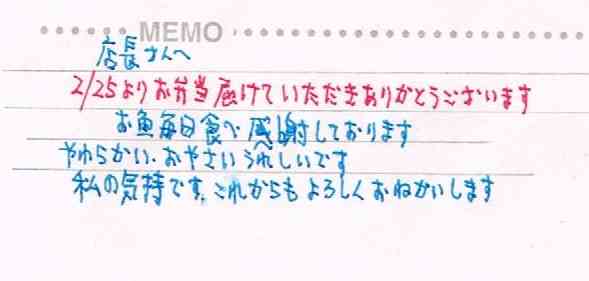 MEMO
店長さんへ
2/25よりお弁当届けていただきありがとうございます
お魚毎日食べ感謝しております
やわらかい.おやさいうれしいです
私の気持です.これからもよろしくおねがいします